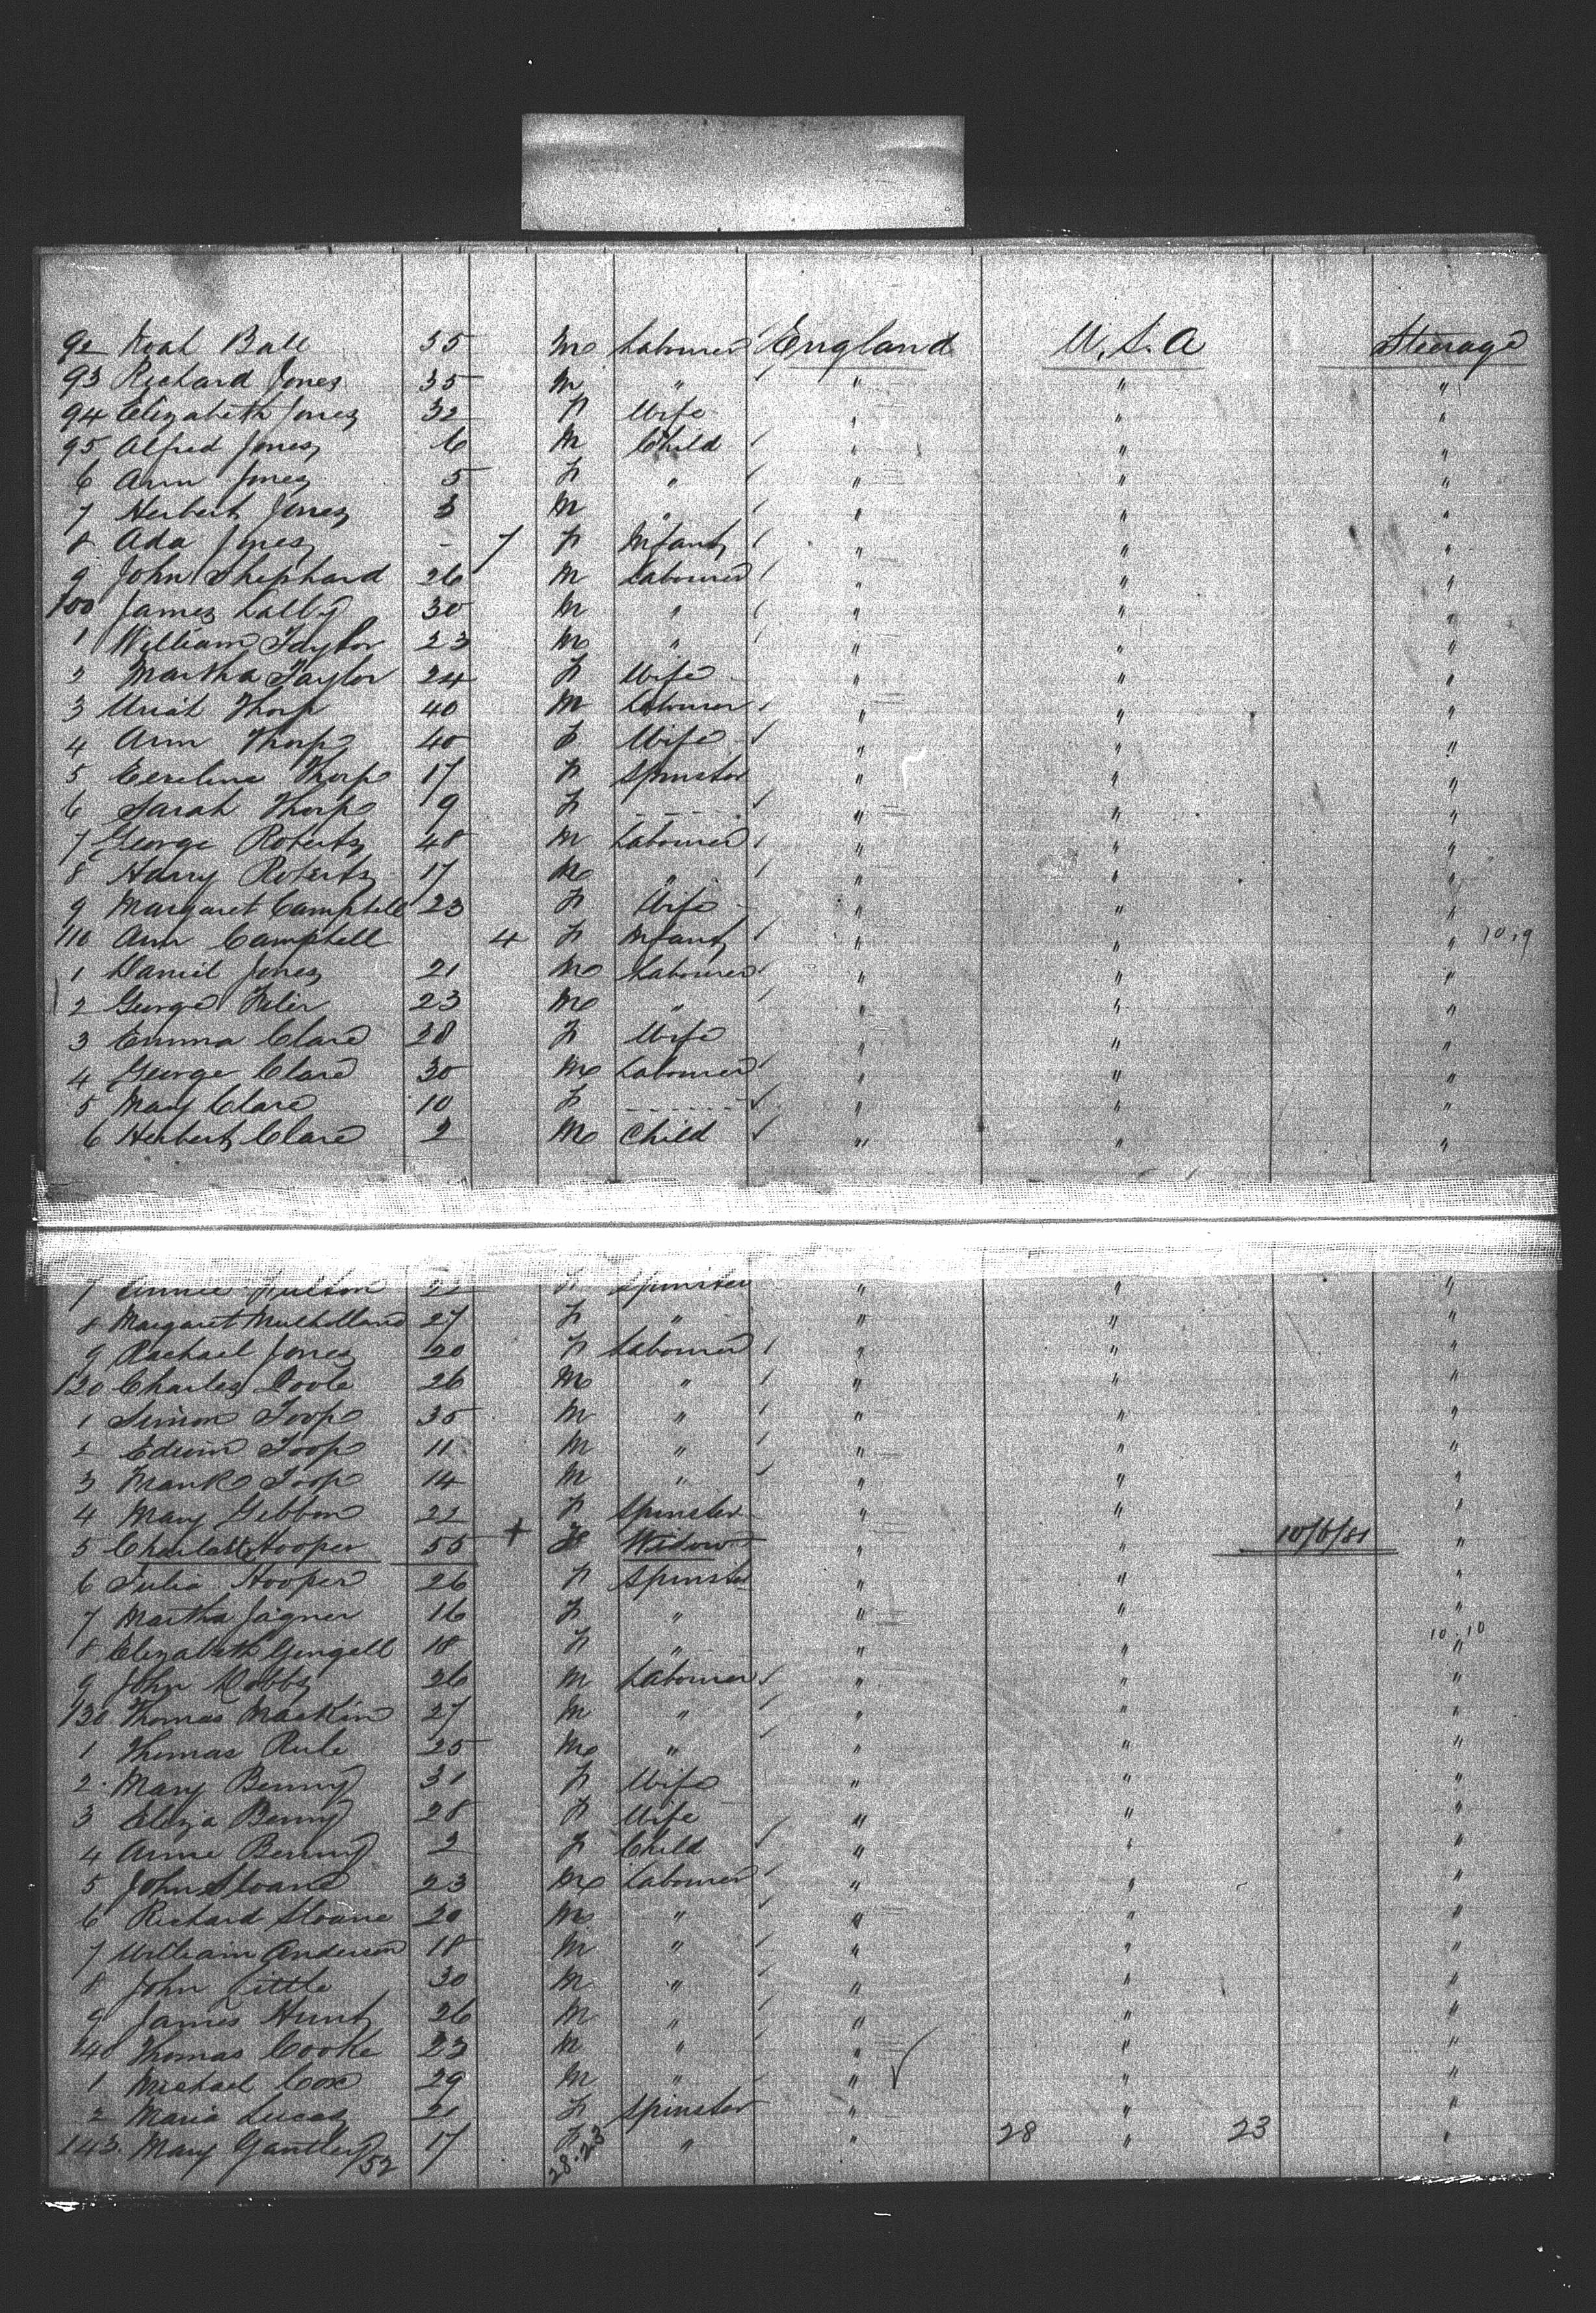 92 Noah Ball 35 M Labourer England U.S.A Steerage
93 Richard Jones 35 M " " " "
94 Elizabeth Jones 32 F Wife " " "
95 Alfred Jones 6 M Child " " "
6 Ann Jones 5 F " " " "
7 Herbert Jones 3 M " " " "
8 Ada Jones - 7 F Infant " " "
9 John Shephard 26 M Labourer " " "
100 James Lally 30 M " " " "
1 William Taylor 23 M " " " "
2 Martha Taylor 24 F Wife " " "
3 Uriah Thorp 40 M Labourer " " "
4 Ann Thorp 40 F Wife " " "
5 Thorp 17 F Spinster " " "
6 Sarah Thorp 9 F ---- " " "
7 George Roberts 48 M Labourer " " "
8 Harry Roberts 17 M " " " "
9 Margaret Campbell 23 F Wife " " "
110 Ann Campbell 4 F Infant " " " 10.9
1 Daniel Jones 21 M Labourer " " "
2 George 23 M " " " "
3 Emma Clare 28 F Wife " " "
4 George Clare 30 M Labourer " " "
5 Mary Clare 10 F ------ " " "
6 Herbert Clare 2 M Child " " "
7 Annie 22 F Spinster " " "
8 Margaret Mulholland 27 F " " " "
9 Rachael Jones 20 F Labourer " " "
120 Charles Poole 26 M " " " "
1 Simon Toop 35 M " " " "
2 Edwin Toop 11 M " " " "
3 Frank Toop 14 M " " " "
4 Mary Gibbon 22 F Spinster " " "
5 Charlotte Hooper 55 + F Widow " " 10/6/81 "
6 Julia Hooper 26 F Spinster " " "
7 Martha Jagner 16 F " " " "
8 Elizabeth Gengell 18 F " " " 10.10 "
9 John Hobbs 26 M Labourer " " "
130 Thomas Mackin 27 M " " " "
1 Thomas Rule 25 M " " " "
2 Mary Benny 31 F Wife " " "
3 Eliza Benny 28 F Wife " " "
4 Annie Benny 2 F Child " " "
5 John Sloane 23 M Labourer " " "
6 Richard Sloane 20 M " " " "
7 William Anderson 18 M " " " "
8 John Little 30 M " " " "
9 James Hunt 26 M " " " "
140 Thomas Cooke 23 M " " " "
1 Michael Cox 29 M " " " "
2 Maria Lucas 21 F Spinster " " "
143 Mary Gantley 17 F " " 28 " 23 "
/52 28.23